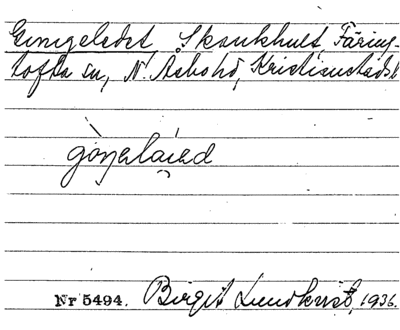 Gingeledet, Skankhult, Färing-
tofta sn, N. Åsbo hd, Kristianstads l.
Nr 5494. Birgit Lundkvist, 1936.